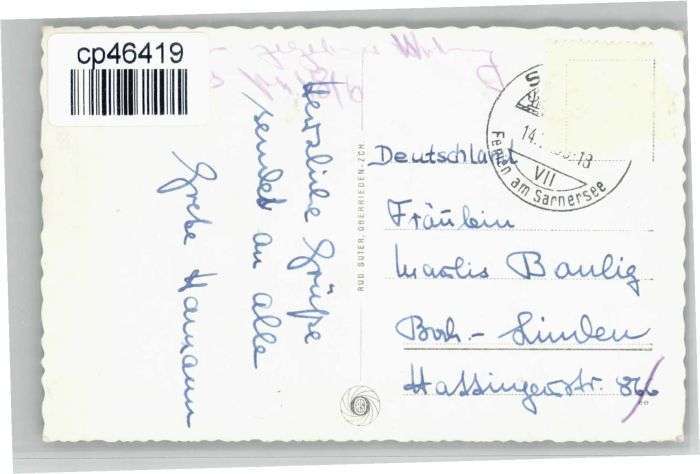 cp46419
Herzliche Grüße
sendet an alle
Grete Hamann
RUD SUTER, OBERRIEDEN-ZCH.
14.
13
VII
Ferien am Sarnersee
Deutschland
Fräulein
Marlis Baulig
Boch.-Linden
Hattingerstr.